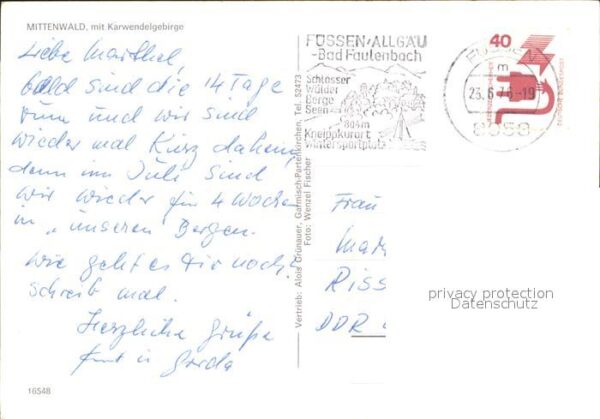 MITTENWALD, mit Karwendelgebirge
Liebe
bald sind die 14 Tage
rum und wir sind
wieder mal kurz daheim,
denn im Juli sind
wir wieder für 4 Wochen
in "unseren Bergen.
Wie geht es Dir noch?
Schreib mal.
Herzliche Grüße
in Gerda
16548
Vertrieb: Alois Grünauer, Garmisch-Partenkirchen, Tel. 52473
Foto: Wenzel Fischer
FÜSSEN/ALLGÄU
-Bad Faulenbach
Schlösser
Wälder
Berge
Seen
804m
Kneippkurort
Wintersportplatz
FÜSSEN
m
23.6.76-19
40
Frau
Mar
Riss
DDR
privacy protection
Datenschutz